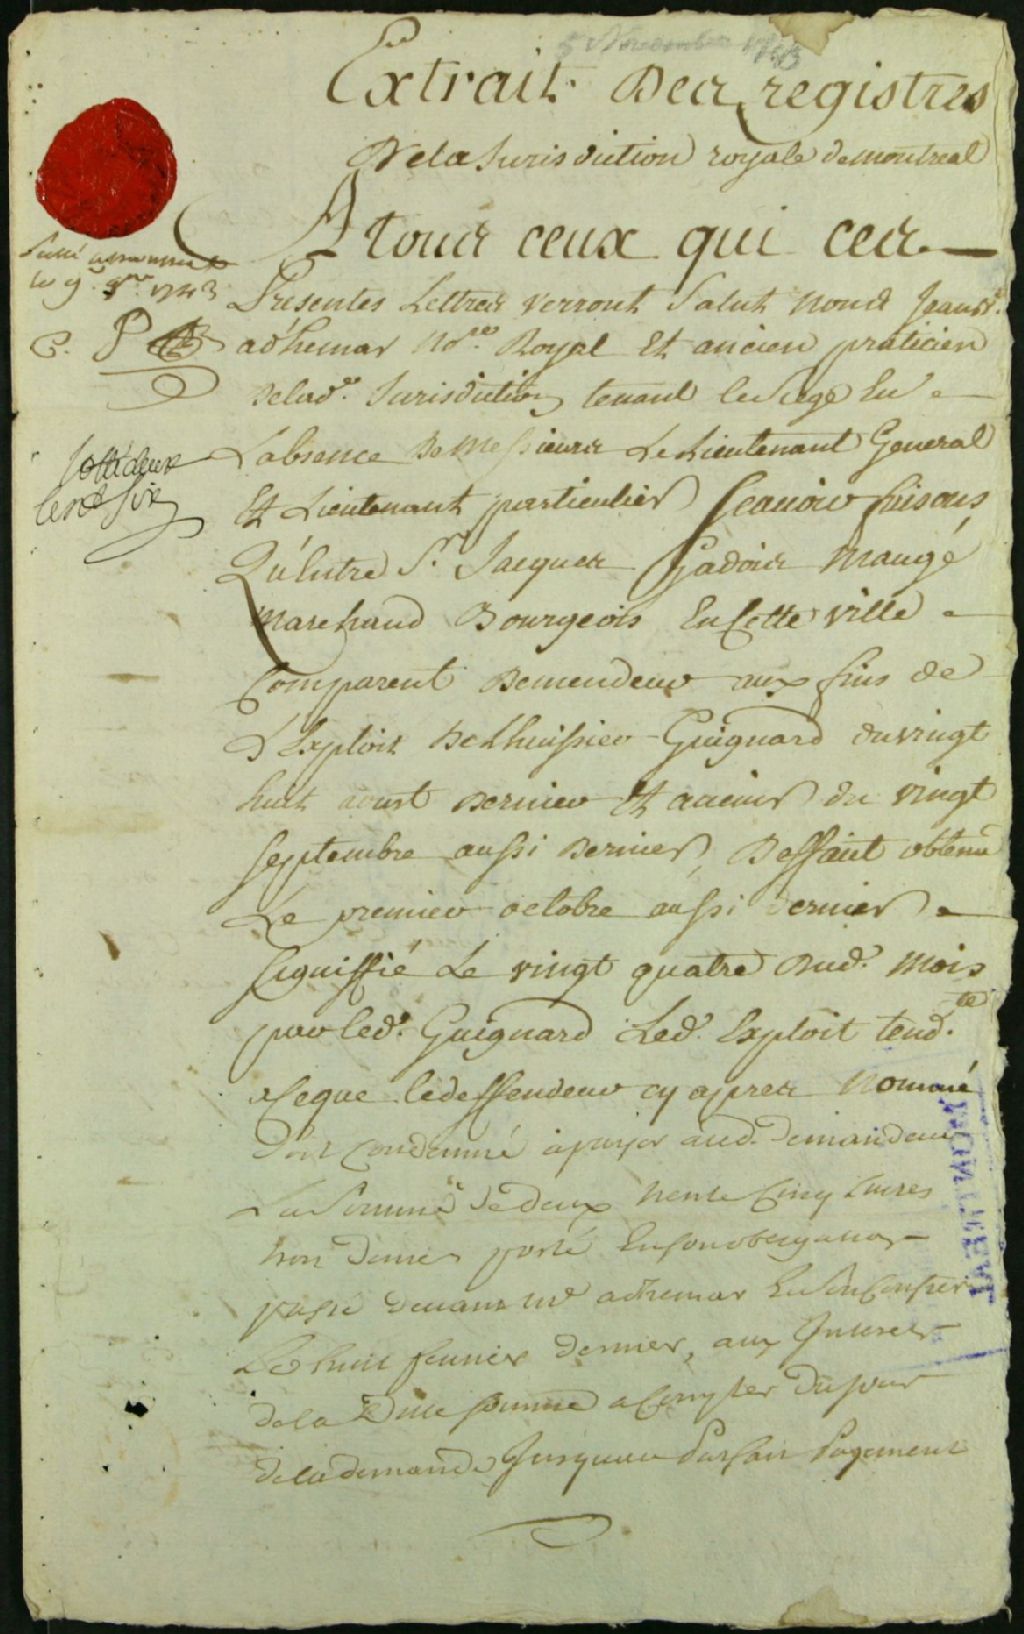 5 Novembre 1743
Extrait Des registres
De la Jurisdiction royale de montreal
A tous ceux qui ces
Presentes Lettres verront Salut Nous Jean Bte.
adhemar Nore. Royal Et ancien praticien
De lade. Jurisdiction tenant le Siege En
L'absence De Messieurs Le Lieutenant General
Et Lieutenant particulier Scavoir faisons
Qu'Entre Sr. Jacques Gadois Maugé
Marchand Bourgeois En Cette ville
Comparent Demendeur aux fins de
L'Exploit De L'huissier Guignard du vingt
huit aoust Dernier Et avenir du vingt
septembre aussi Dernier, Deffaut obtenu
Le premier octobre aussi dernier
signiffié Le vingt quatre Dud. Mois
par led. Guignard Led. Exploit tend.te
a Ceque le deffendeur cy apres Nommé
soit Condemné a payer aud. demandeur
La Somme de deux trente Cinq Livres
trois deniers porté En son obligation
passé devant Me adhemar
Le huit fevrier dernier, aux Interets
de la Ditte somme a Compter du jour
de la demande Jusquau Parfait Payement
Scellé a montreal
le 9. 9bre 1743
Cotté deux
Cent six
MONTREAL